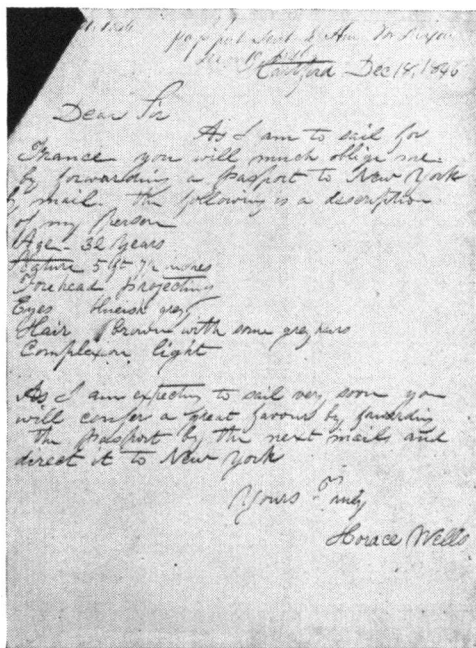 1846
Hartford Dec 18, 1846
Dear Sir
As I am to sail for
France you will much oblige me
by forwarding a passport to New York
by mail. the following is a description
of my person
Age 32 years
Stature 5 ft inches
Forehead projecting
Eyes blueish grey
Hair brown with some grey hairs
Complexion light
As I am expecting to sail very soon you
will confer a great favour by forwarding
the passport by the next mail and
direct it to New York
Yours Truly
Horace Wells